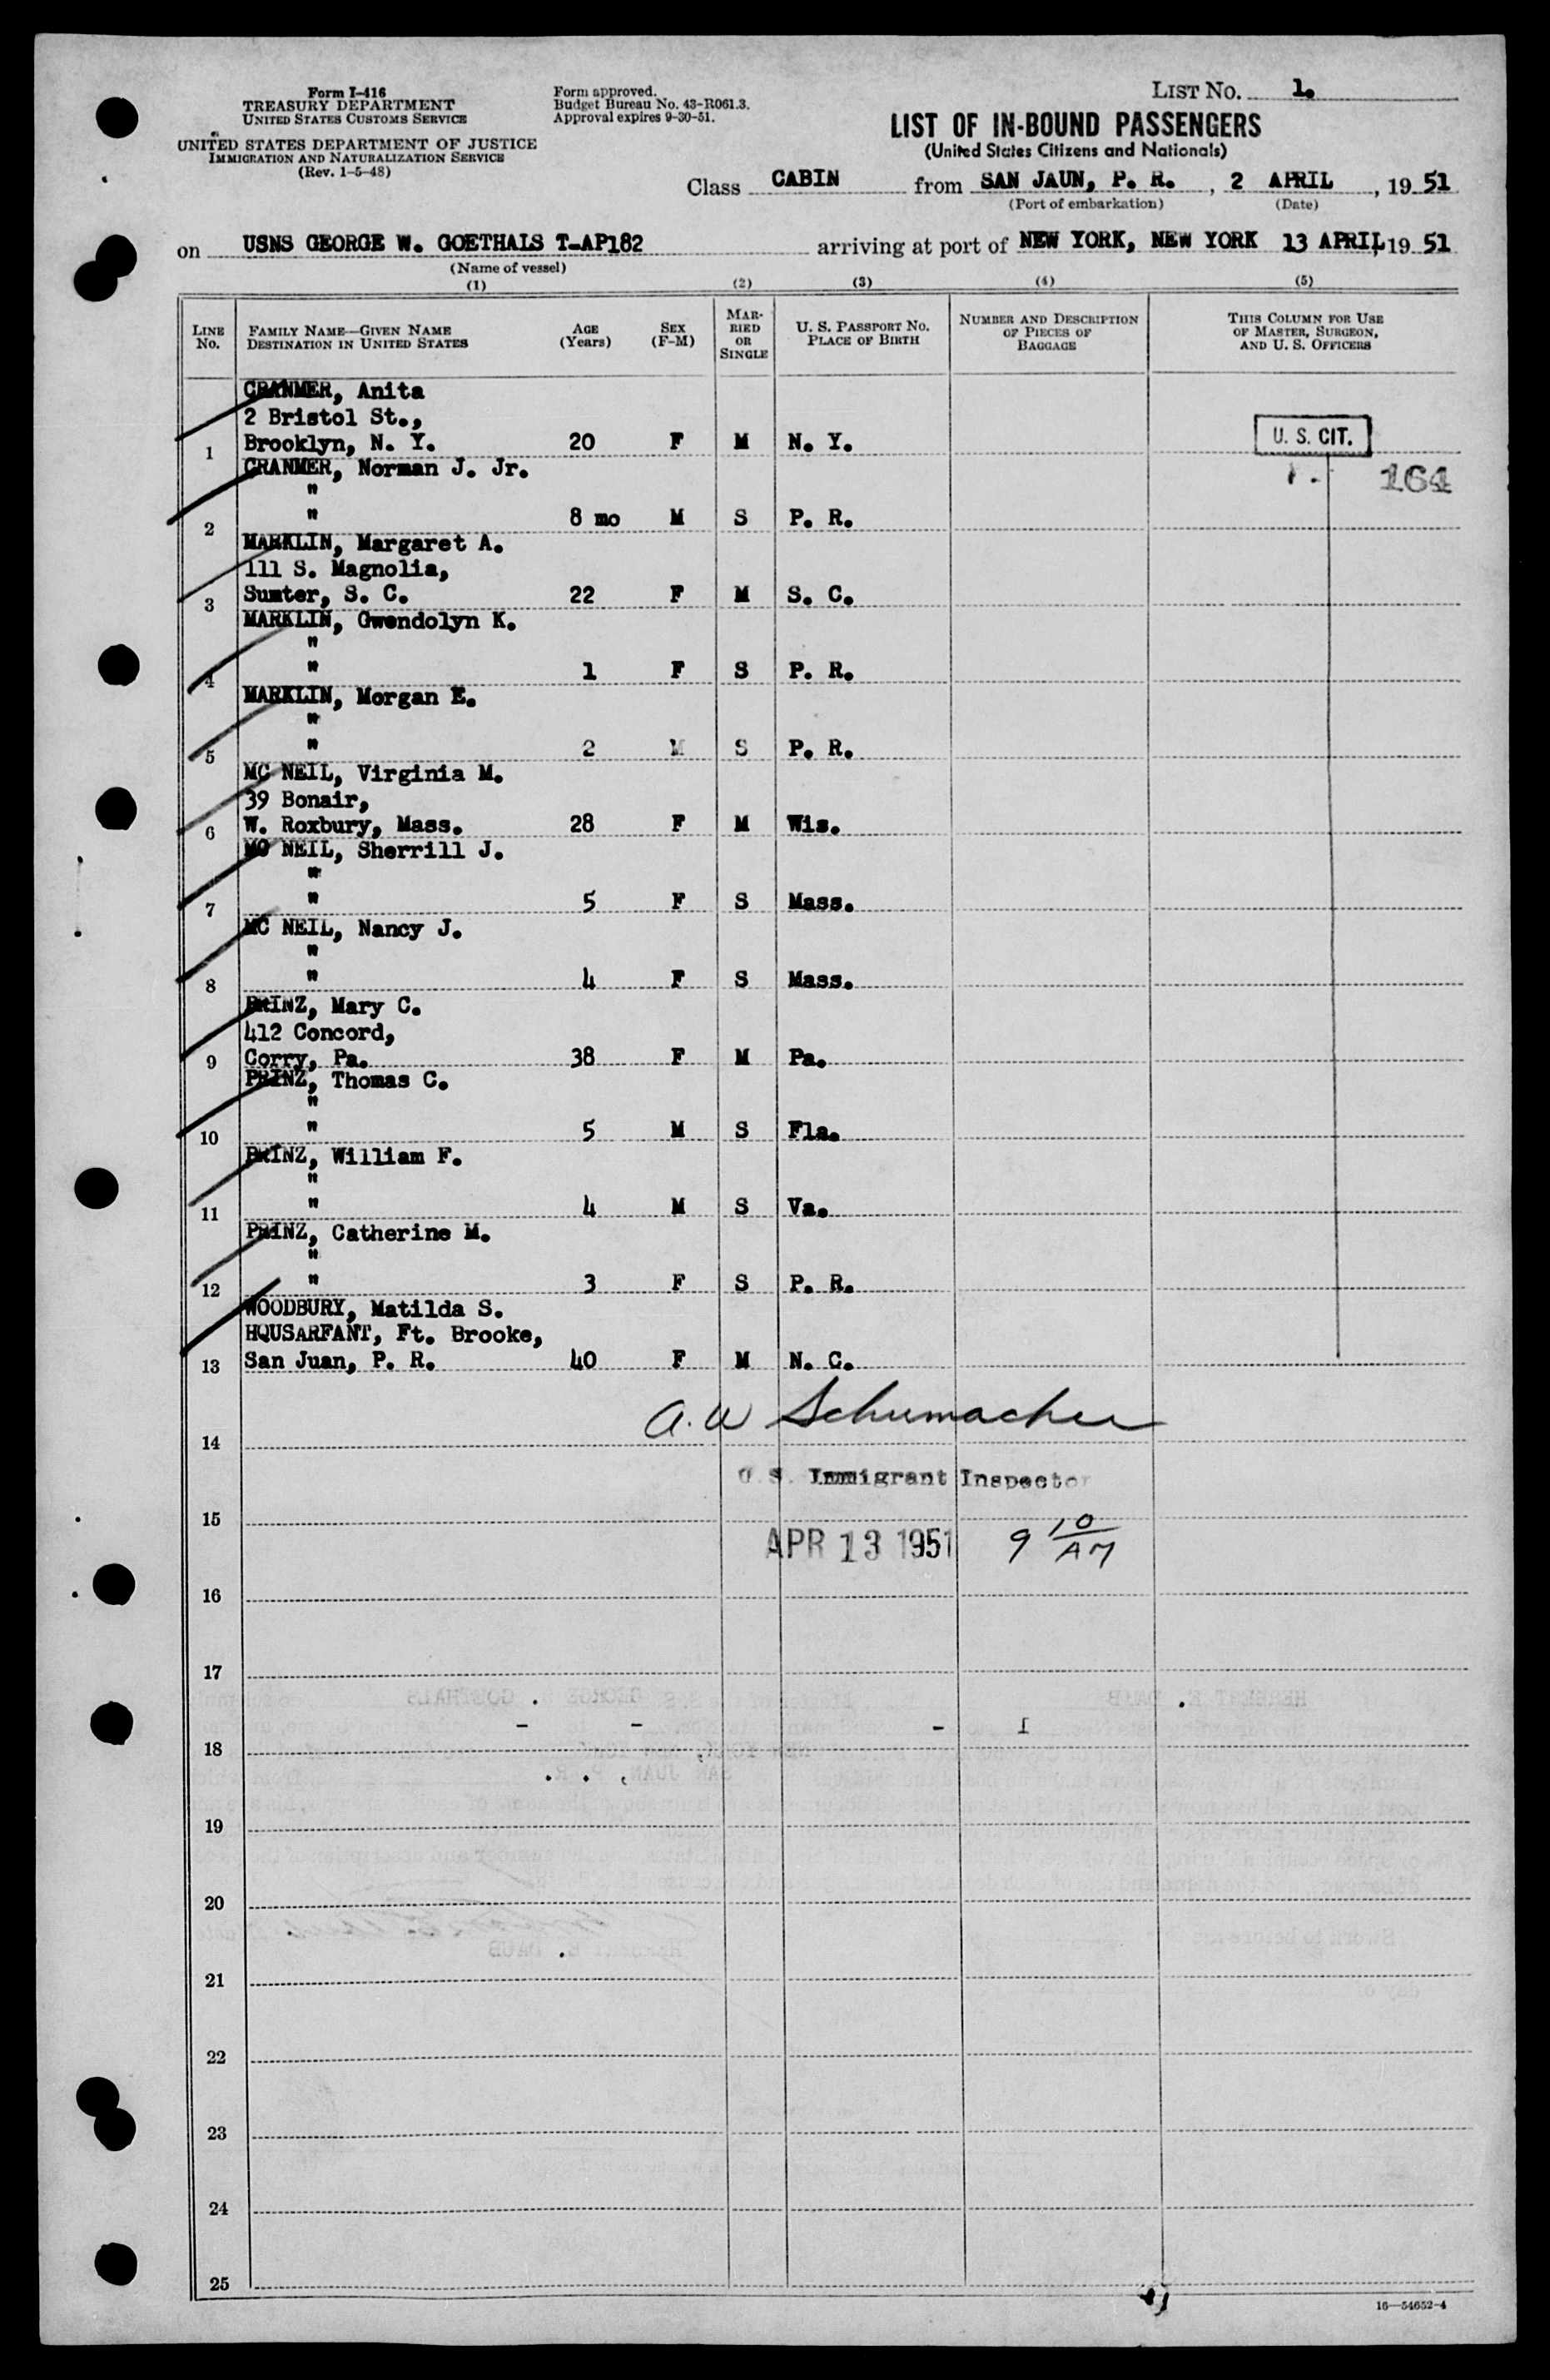 Form I-416
TREASURY DEPARTMENT
UNITED STATES CUSTOMS SERVICE
UNITED STATES DEPARTMENT OF JUSTICE
IMMIGRATION AND NATURALIZATION SERVICE
(Rev. 1-5-48)
Form approved.
Budget Bureau No. 43-R061.3.
Approval expires 9-30-51.
LIST NO. 1.
LIST OF IN-BOUND PASSENGERS
(United States Citizens and Nationals)
Class CABIN from SAN JAUN, P. R., 2 APRIL, 19 51
(Port of embarkation) (Date)
on USNS GEORGE W. GOETHALS T-AP182 arriving at port of NEW YORK, NEW YORK 13 APRIL, 19 51
(Name of vessel)
(1) (2) (3) (4) (5)
LINE NO.
FAMILY NAME—GIVEN NAME
DESTINATION IN UNITED STATES
AGE (Years)
SEX (F-M)
MARRIED OR SINGLE
U. S. PASSPORT NO.
PLACE OF BIRTH
NUMBER AND DESCRIPTION OF PIECES OF BAGGAGE
THIS COLUMN FOR USE OF MASTER, SURGEON, AND U. S. OFFICERS
CRANMER, Anita
2 Bristol St.,
1 Brooklyn, N. Y. 20 F M N. Y. U. S. CIT.
CRANMER, Norman J. Jr. 164
"
2 " 8 mo M S P. R.
MARKLIN, Margaret A.
111 S. Magnolia,
3 Sumter, S. C. 22 F M S. C.
MARKLIN, Gwendolyn K.
"
4 " 1 F S P. R.
MARKLIN, Morgan E.
"
5 " 2 M S P. R.
MC NEIL, Virginia M.
39 Bonair,
6 W. Roxbury, Mass. 28 F M Wis.
MC NEIL, Sherrill J.
"
7 " 5 F S Mass.
MC NEIL, Nancy J.
"
8 " 4 F S Mass.
PRINZ, Mary C.
412 Concord,
9 Corry, Pa. 38 F M Pa.
PRINZ, Thomas C.
"
10 " 5 M S Fla.
PRINZ, William F.
"
11 " 4 M S Va.
PRINZ, Catherine M.
"
12 " 3 F S P. R.
WOODBURY, Matilda S.
HQUSARFANT, Ft. Brooke,
13 San Juan, P. R. 40 F M N. C.
A. W Schumacher
14
U. S. Immigrant Inspector
15
APR 13 1951 9 10 AM
16
17
18
19
20
21
22
23
24
25
16—54652-4